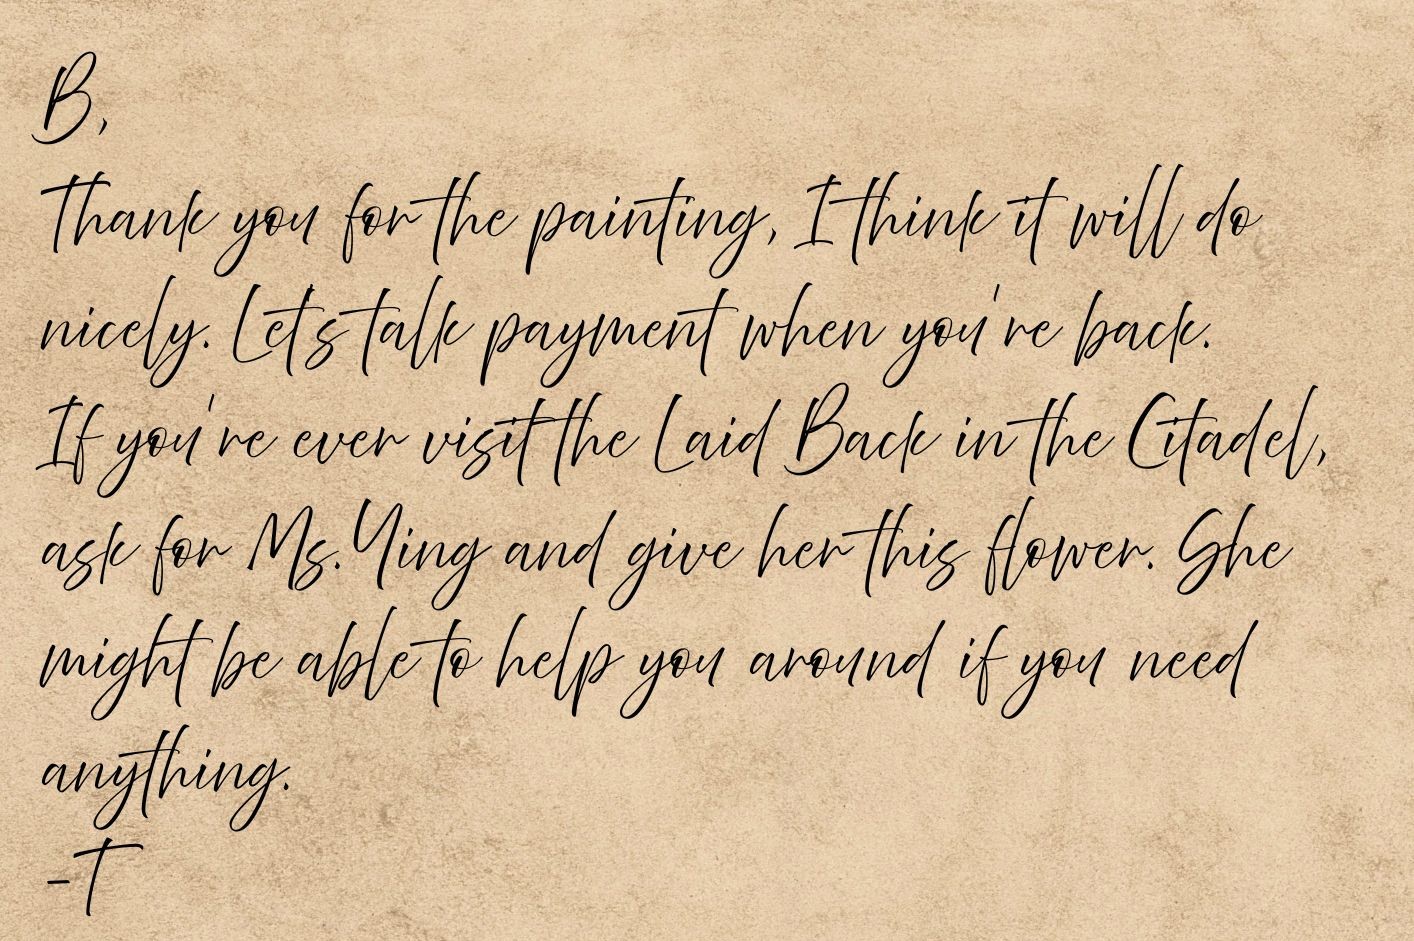 B,
Thank you for the painting, I think it will do
nicely. Let's talk payment when you're back.
If you're ever visit the Laid Back in the Citadel,
ask for Ms. Ying and give her this flower. She
might be able to help you around if you need
anything.
-T